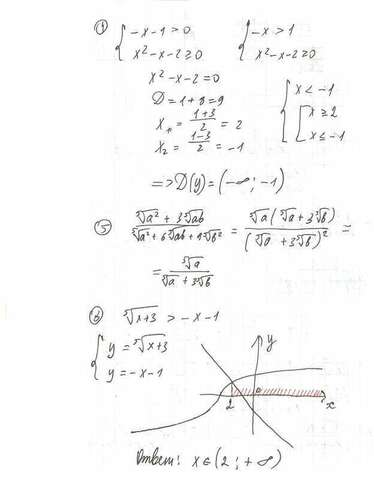 ④ { -x-1>0   { -x>1
x²-x-2≥0   x²-x-2≥0
x²-x-2=0
D=1+8=9   { x<-1
x₁=(1+3)/2=2   [ x≥2
x₂=(1-3)/2=-1   x≤-1
=>D(y)=(-∞;-1)
⑤ (⁵√a²+3⁵√ab)/(⁵√a²+6⁵√ab+9⁵√b²) = ⁵√a(⁵√a+3⁵√b)/(⁵√a+3⁵√b)² =
= ⁵√a/(⁵√a+3⁵√b)
⑥ ⁵√x+3 > -x-1
{ y=⁵√x+3   y
y=-x-1
2   0   x
Ответ: x∈(2;+∞)